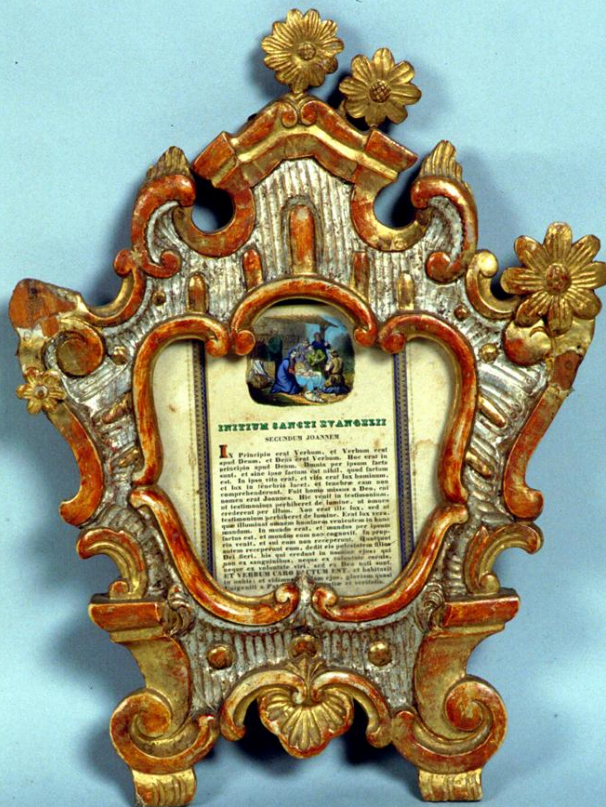 INITIUM SANCTI EVANGELII
SECUNDUM JOANNEM
IN Principio erat Verbum, et Verbum erat
apud Deum, et Deus erat Verbum. Hoc erat in
principio apud Deum. Omnia per ipsum facta
sunt, et sine ipso factum est nihil, quod factum
est. In ipso vita erat, et vita erat lux hominum,
et lux in tenebris lucet, et tenebræ eam non
comprehenderunt. Fuit homo missus a Deo, cui
nomen erat Joannes. Hic venit in testimonium,
ut testimonium perhiberet de lumine, ut omnes
crederent per illum. Non erat ille lux, sed ut
testimonium perhiberet de lumine. Erat lux vera,
quæ illuminat omnem hominem venientem in hunc
mundum. In mundo erat, et mundus per ipsum
factus est, et mundus eum non cognovit. In prop-
ria venit, et sui eum non receperunt. Quotquot
autem receperunt eum, dedit eis potestatem filios
Dei fieri, his qui credunt in nomine ejus; qui
non ex sanguinibus, neque ex voluntate carnis,
neque ex voluntate viri, sed ex Deo nati sunt.
ET VERBUM CARO FACTUM EST, et habitavit
in nobis; et vidimus ejus, gloriam quasi
Unigeniti a et veritatis.